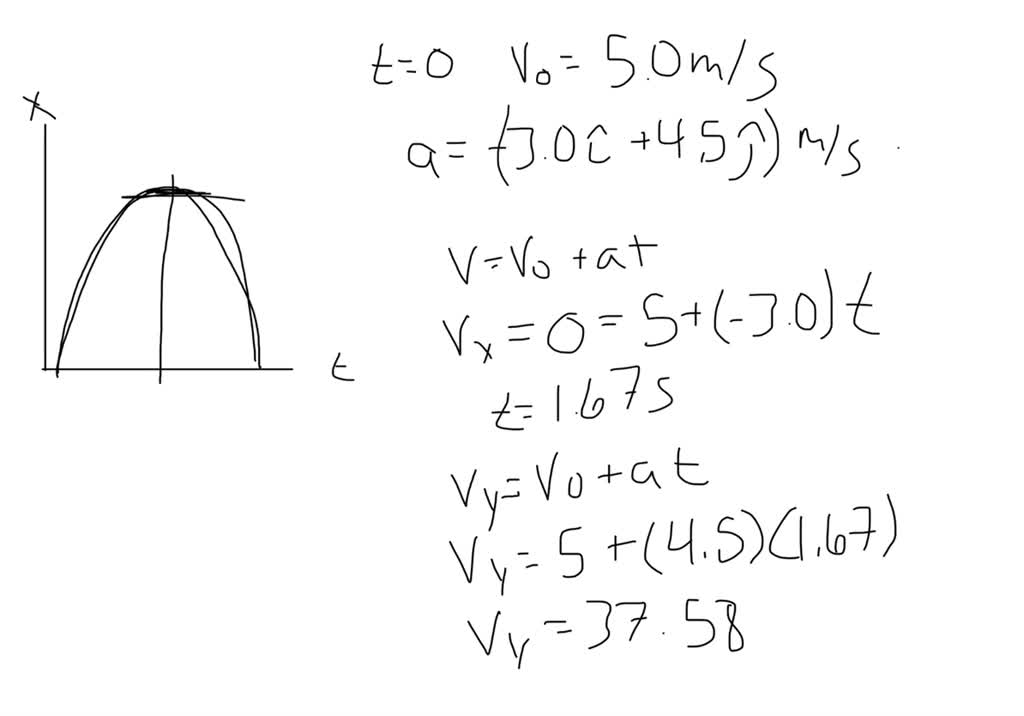 t=0 V₀ = 5.0m/s
a = (-3.0î +4.5ĵ) m/s
x
V=V₀ +at
Vₓ = 0 = 5+(-3.0)t
t
t=1.67s
Vy=V₀+at
Vy= 5 +(4.5)(1.67)
Vy =37.58